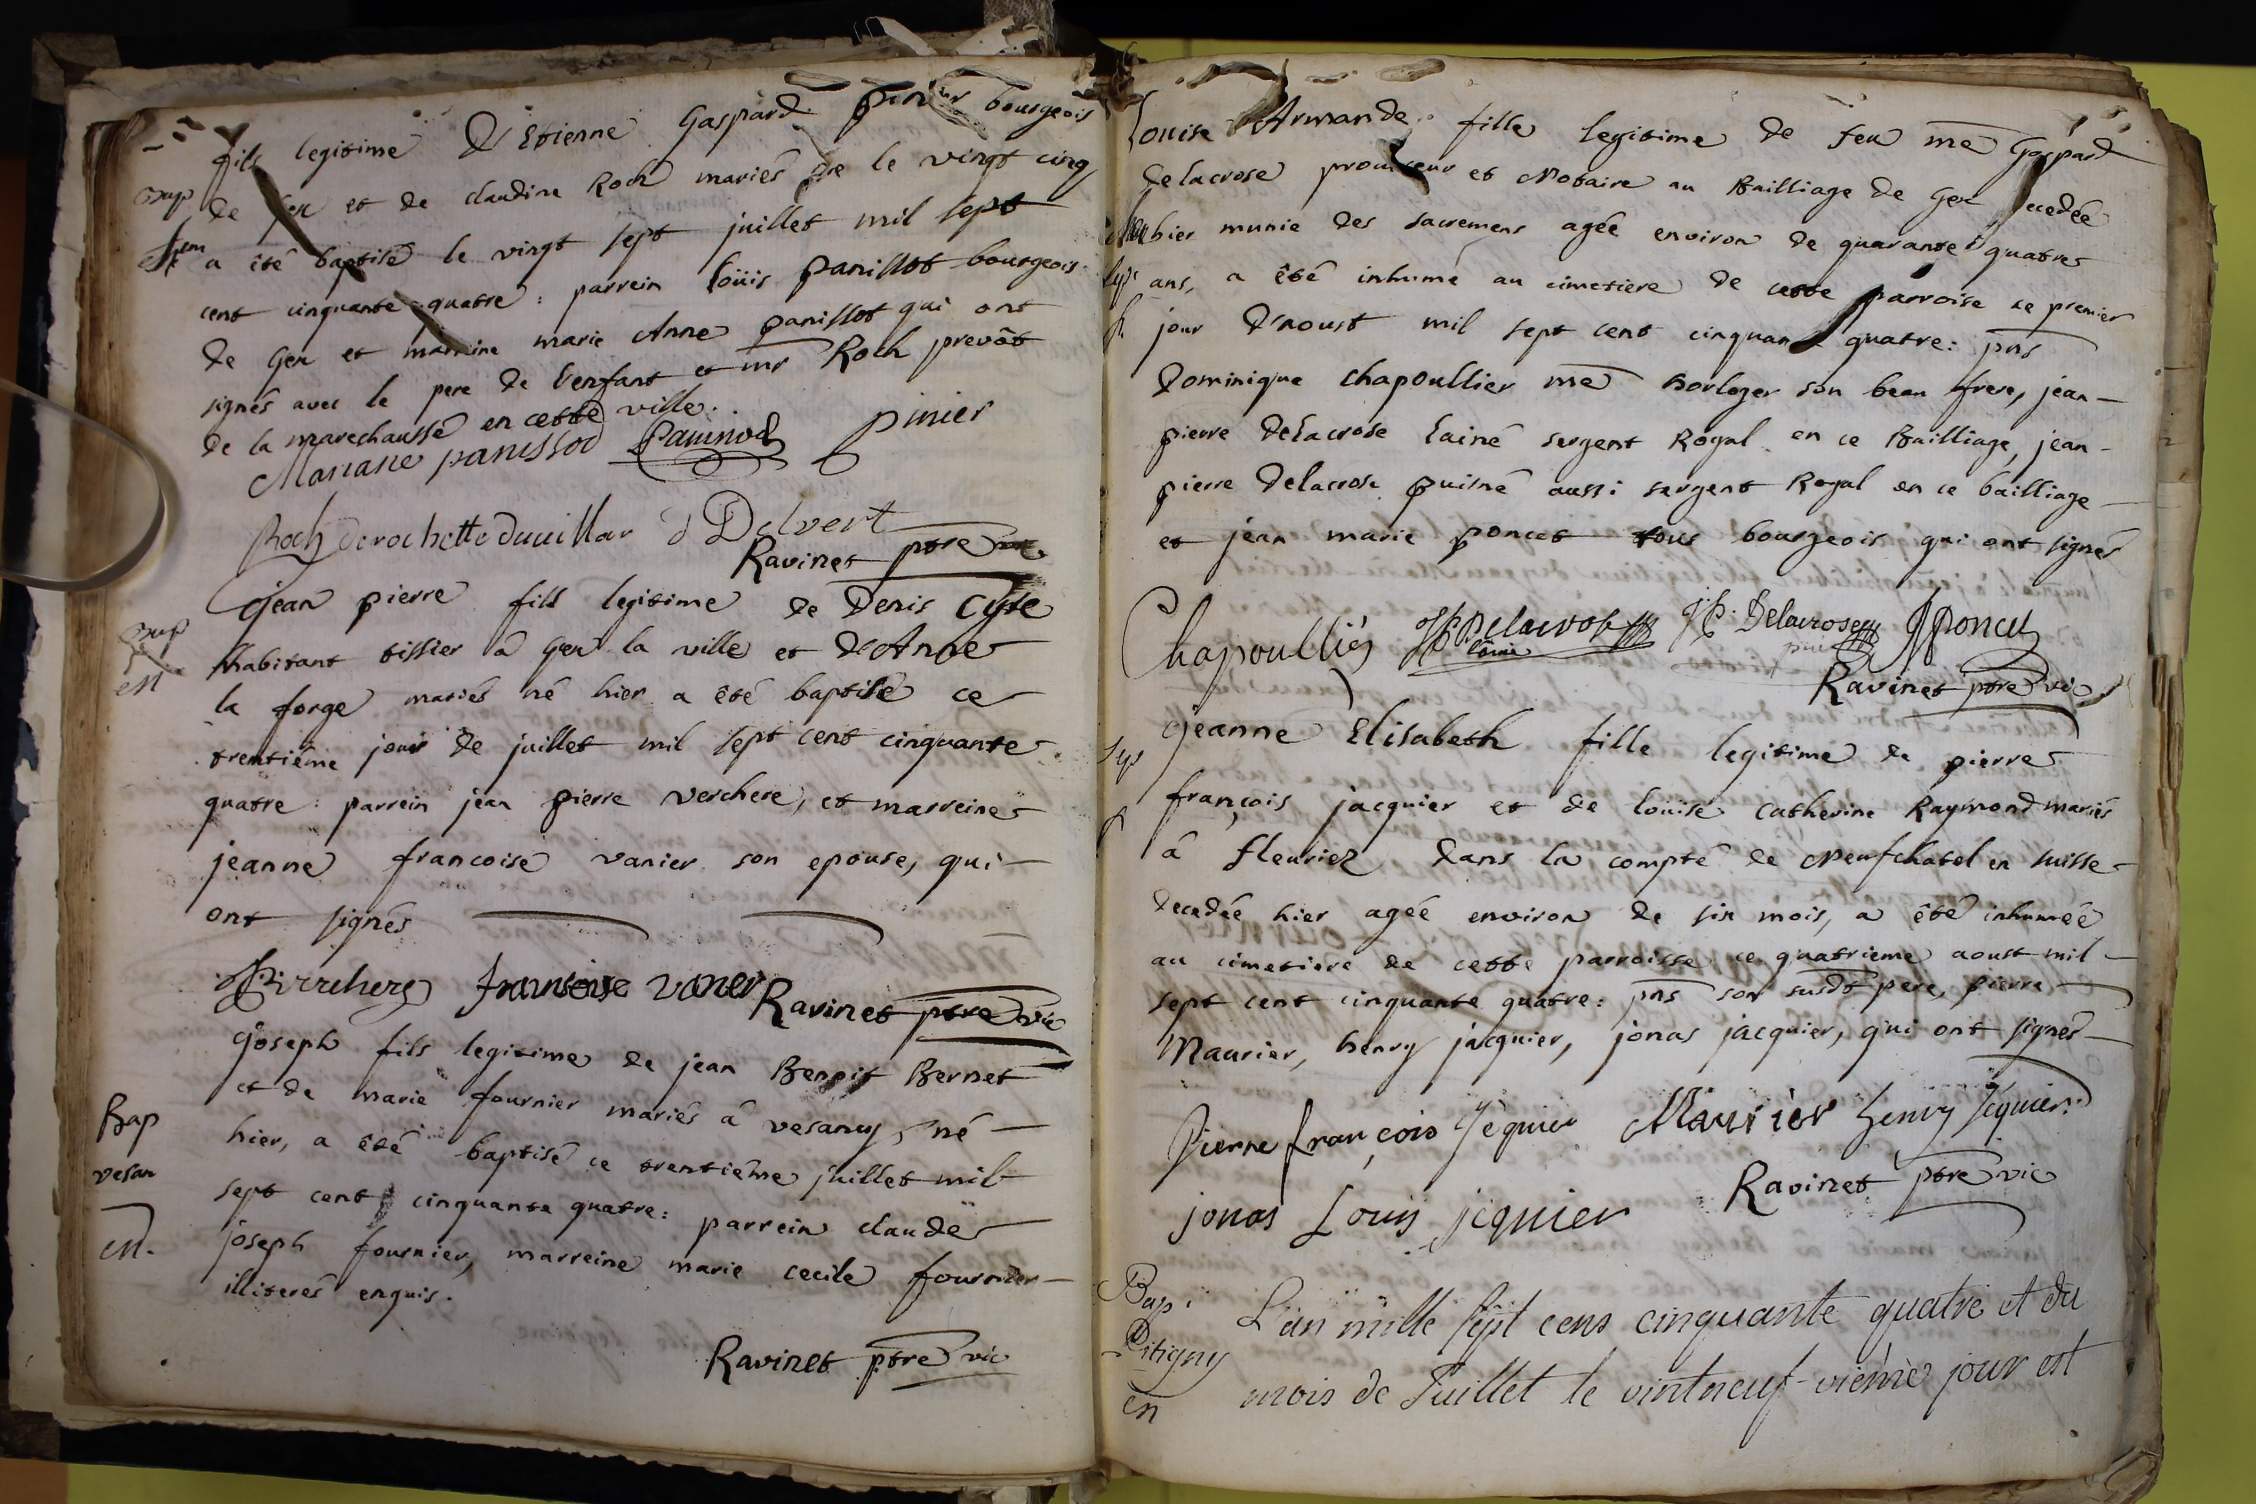 fils legitime D'Etienne Gaspard pinier bourgeois
Bap
de Gex et de claudine Roch mariés né le vingt cinq
a êté baptisé le vingt sept juillet mil sept
cent cinquante quatre : parrein loüis panissot bourgeois
de Gex et marraine marie Anne panissot qui ont
signés avec le pere de l'enfant et mr Roch prevôt
de la marechaussé en cette ville.
Mariane panissod Paninod pinier
Roch derochette duuillar d Delvert
Ravinet ptre vic
jean pierre fils legitime de Denis Cyse
Bap
habitant tissier à Gex la ville et d'Anne
en
la forge mariés né hier a êté baptisé ce
trentiême jour de juillet mil sept cent cinquante
quatre : parrein jean pierre verchere, et marreine
jeanne francoise vanier son epouse, qui
ont signés
JP verchere francoise vanier Ravinet ptre vic
joseph fils legitime de jean Benoit Bernet
et de marie fournier mariés à vesancy, né
Bap
hier, a êté baptisé ce trentiême juillet mil
vesan
sept cent cinquante quatre : parrein claude
en.
joseph fournier, marreine marie cecile fournier
illiterés enquis.
Ravinet ptre vic
Louise Armande fille legitime de feu me Gaspard
Delacrose procureur et Notaire au Bailliage de Gex decedée
hier munie des sacremens agée environ de quarante quatre
sep
ans, a êté inhumé au cimetiere de cette parroise ce premier
jour d'aoust mil sept cent cinquante quatre : pns
Dominique chapoullier me horloger son beau frere, jean
pierre Delacrose lainé sergent Royal en ce Bailliage, jean
pierre Delacrose puisné aussi sergent Royal en ce bailliage
et jean marie poncet tous bourgeois qui ont signés
Chapoulliér JP Delacrose lainé JP. Delacrose puisné JPoncet
Ravinet ptre vic
jeanne Elisabeth fille legitime de pierre
sep
françois jacquier et de loüise catherine Raymond mariés
à fleuriez dans la compté de Neufchatel en suisse
decedée hier agée environ de six mois, a êté inhumée
au cimetiere de cette parroisse ce quatrieme aoust mil
sept cent cinquante quatre : pns son susdt pere, pierre
Maurier, henry jacquier, jonas jacquier, qui ont signés
Pierre françois Jéquier Maurièr henry Jequier
Ravinet ptre vic
jonas Louis jequier
Bap
L'an mille sept cens cinquante quatre et du
Ditigny
mois de Juillet le vintneuf-viéme jour est
en